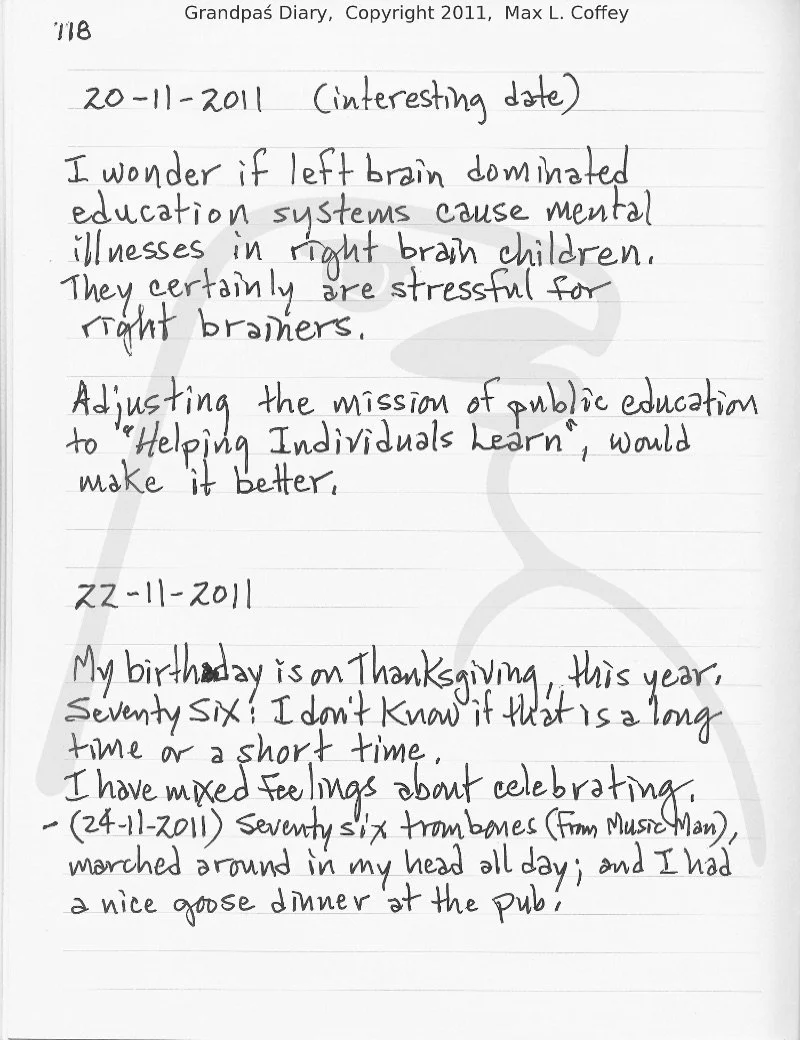 Grandpaś Diary, Copyright 2011, Max L. Coffey
118
20-11-2011 (interesting date)
I wonder if left brain dominated
education systems cause mental
illnesses in right brain children.
They certainly are stressful for
right brainers.
Adjusting the mission of public education
to "Helping Individuals Learn", would
make it better.
22-11-2011
My birthday is on Thanksgiving, this year.
Seventy Six! I don't know if that is a long
time or a short time.
I have mixed feelings about celebrating.
- (24-11-2011) Seventy six trombones (From Music Man),
marched around in my head all day; and I had
a nice goose dinner at the pub.